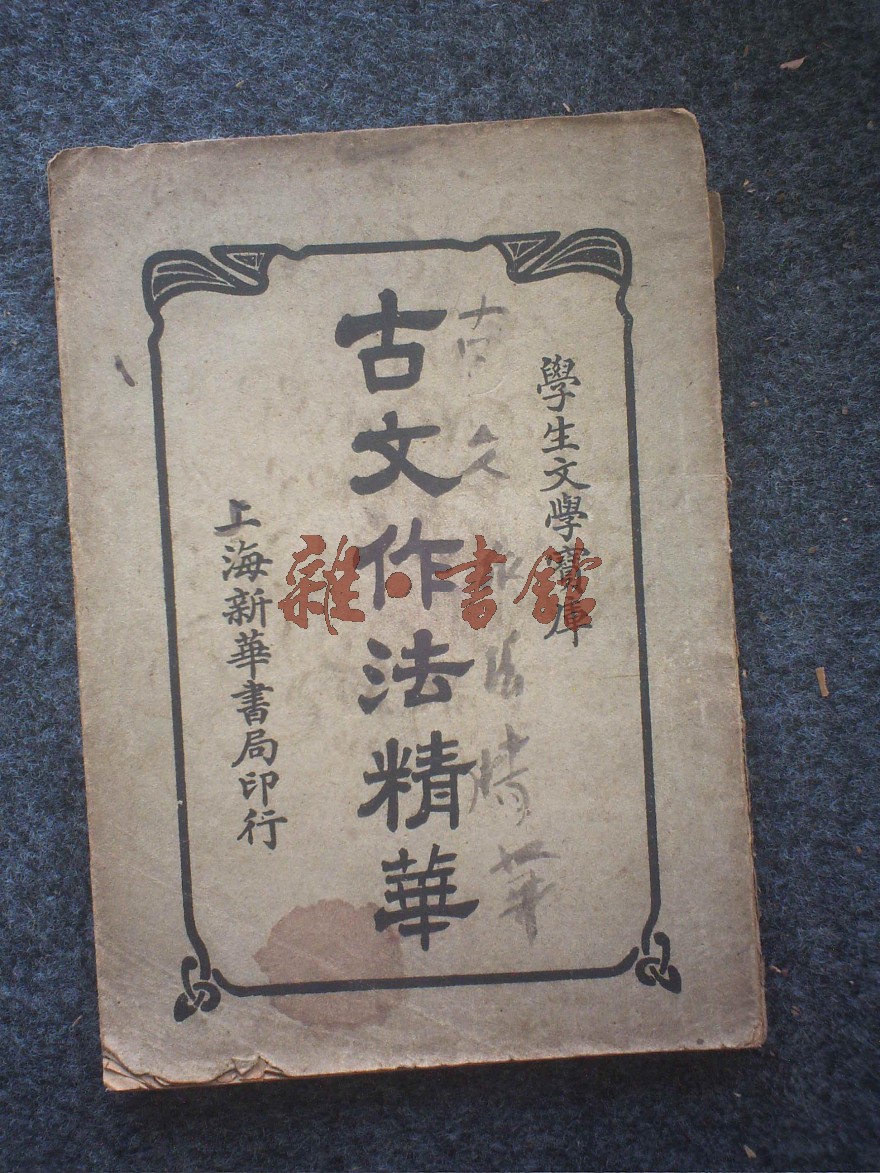 學生文學寶庫
古文作法精華
古文作法精華
上海新華書局印行
雜·書館